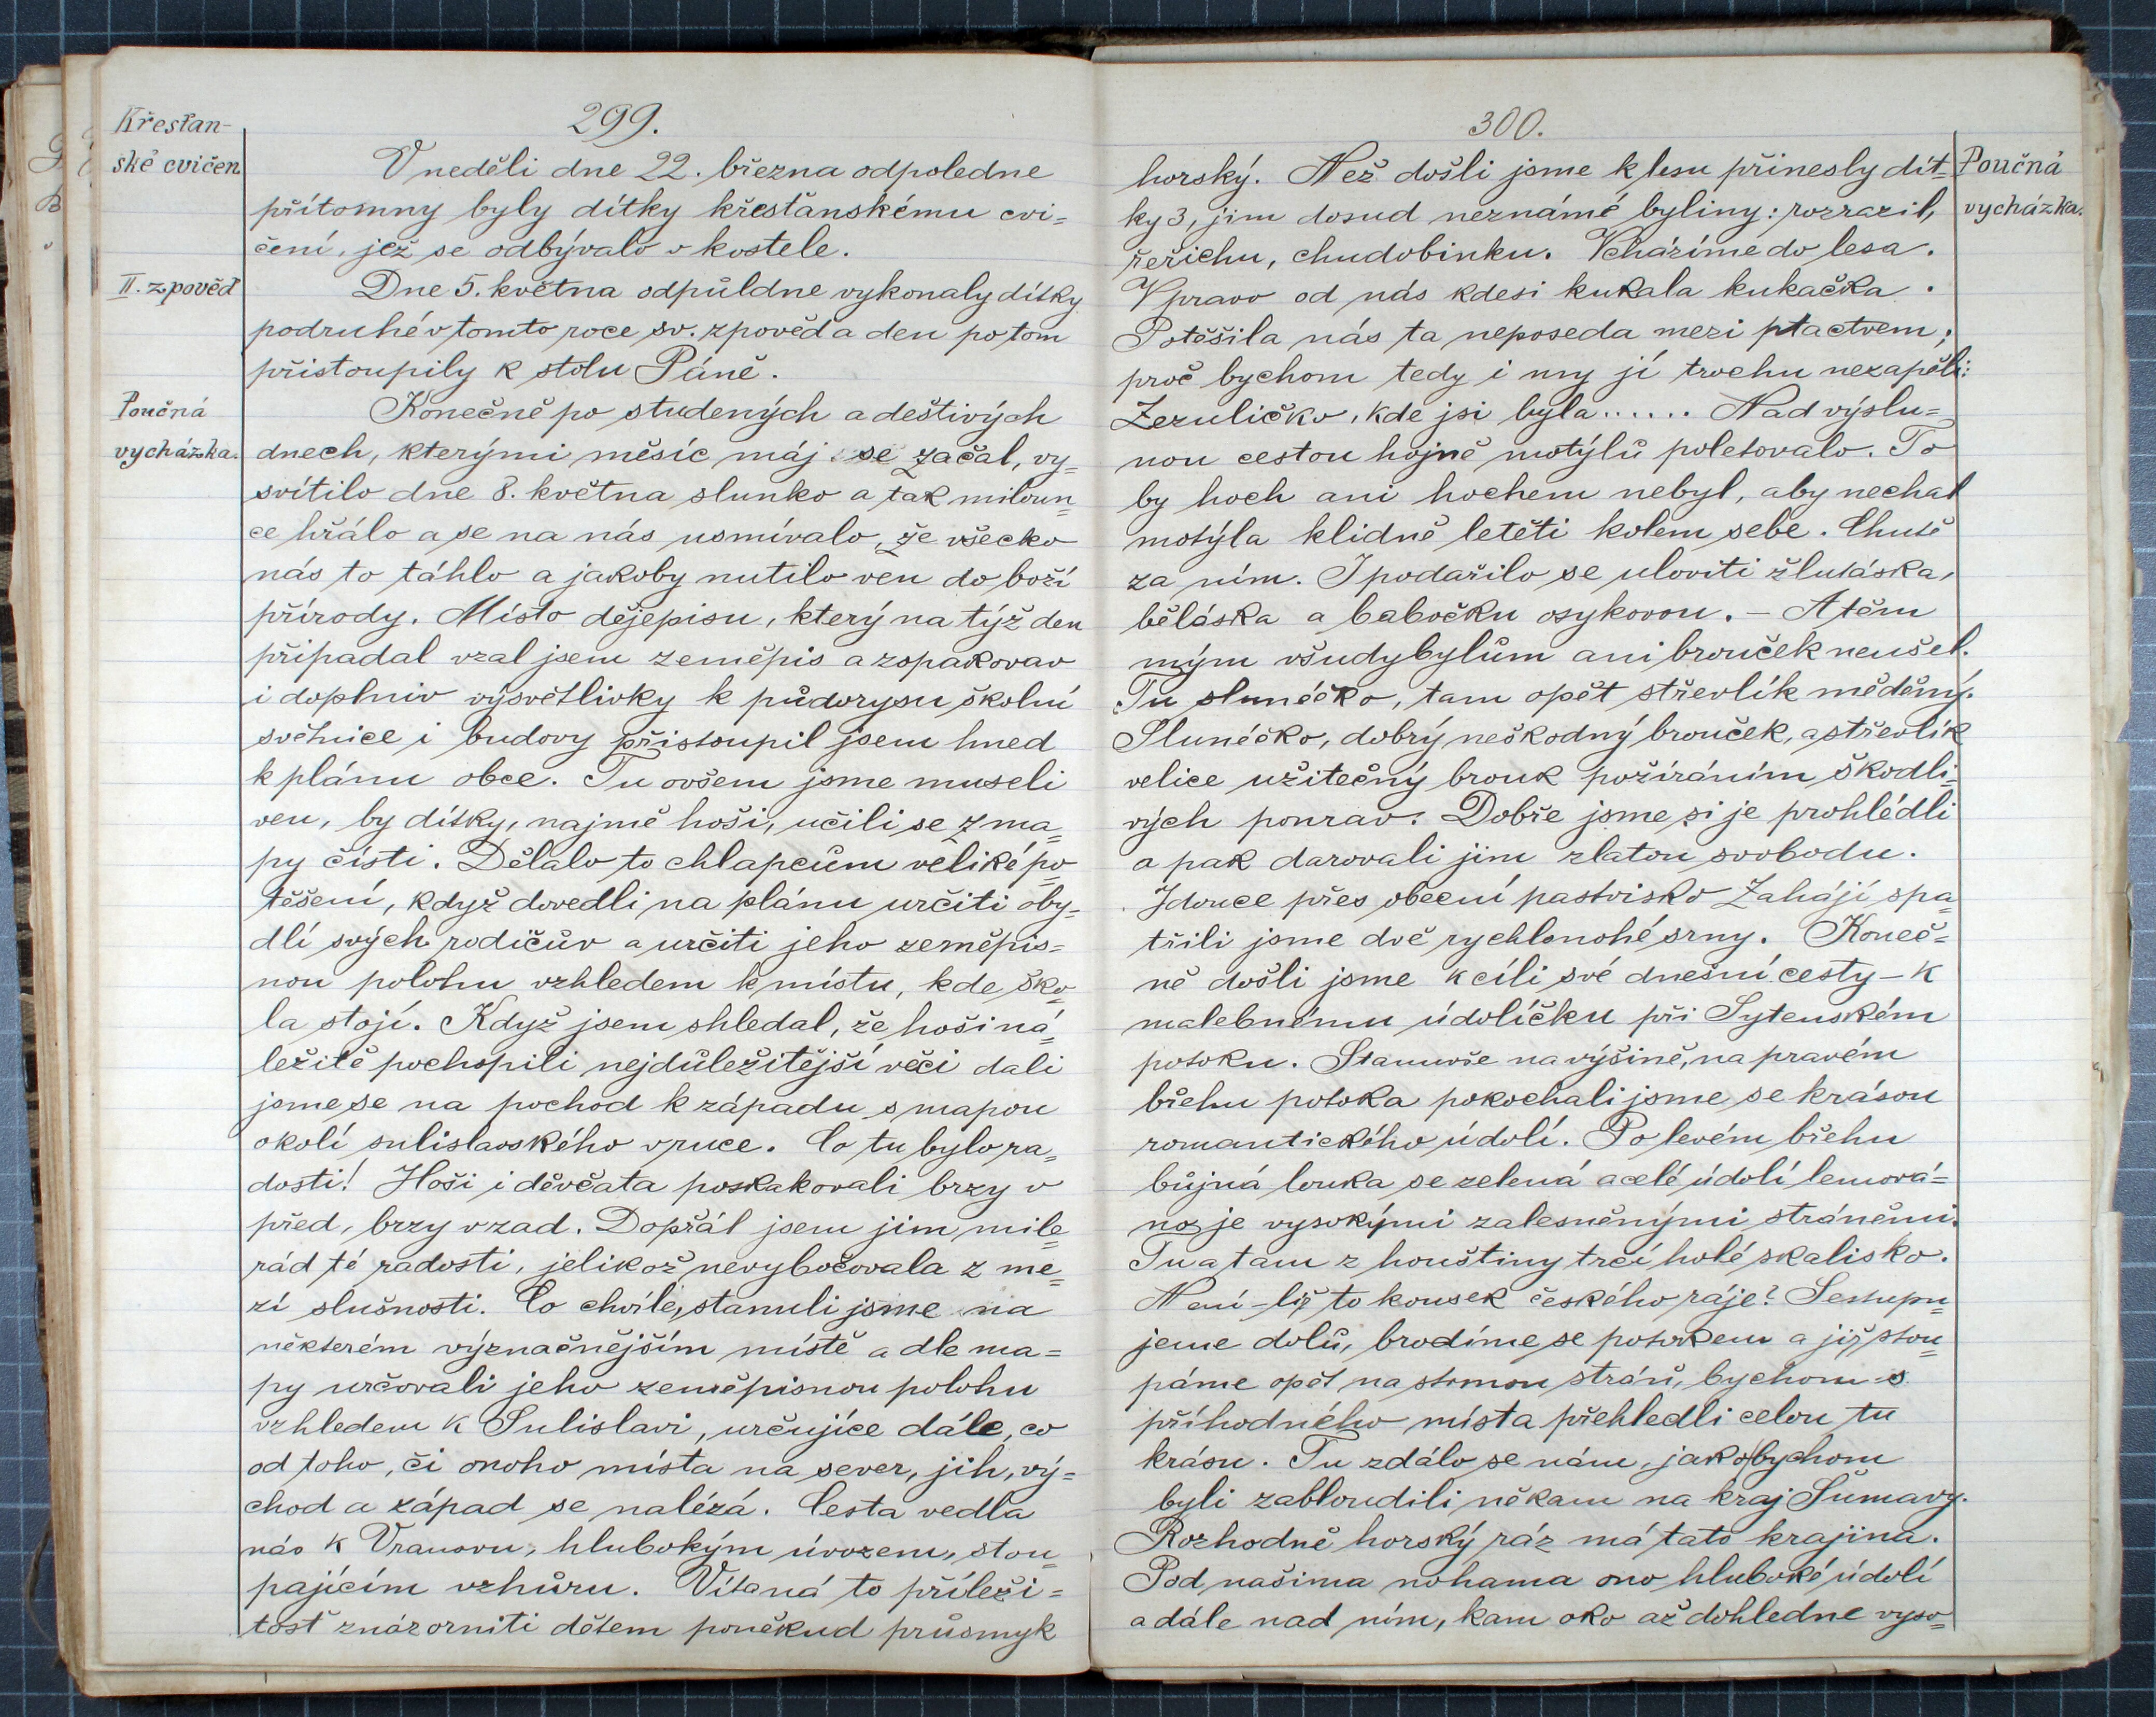 299.
Křesťan-
ské cvičen
V neděli dne 22. března odpoledne
přítomny byly dítky křesťanskému cvi=
čení, jež se odbývalo v kostele.
II. zpověď
Dne 5. května odpůldne vykonaly dítky
podruhé v tomto roce sv. zpověď a den potom
přistoupily k stolu Páně.
Poučná
vycházka.
Konečně po studených a deštivých
dnech, kterými měsíc máj se začal, vy=
svítilo dne 8. května slunko a tak miloun=
ce hřálo a se na nás usmívalo, že všecko
nás to táhlo a jakoby nutilo ven do boží
přírody. Místo dějepisu, který na týž den
připadal vzal jsem zeměpis a zopakovav
i doplniv vysvětlivky k půdorysu školní
světnice i budovy přistoupil jsem hned
k plánu obce. Tu ovšem jsme museli
ven, by dítky, najmě hoši, učili se z ma=
py čísti. Dělalo to chlapcům veliké po=
těšení, když dovedli na plánu určiti oby=
dlí svých rodičův a určiti jeho zeměpis=
nou polohu vzhledem k místu, kde ško=
la stojí. Když jsem shledal, že hoši ná=
ležitě pochopili nejdůležitější věci dali
jsme se na pochod k západu s mapou
okolí sulislavského v ruce. Co tu bylo ra=
dosti! Hoši i děvčata poskakovali brzy v
před, brzy vzad. Dopřál jsem jim mile=
rád té radosti, jelikož nevybočovala z me=
zí slušnosti. Co chvíle, stanuli jsme na
některém význačnějším místě a dle ma=
py určovali jeho zeměpisnou polohu
vzhledem k Sulislavi, určujíce dále, co
od toho, či onoho místa na sever, jih, vý=
chod a západ se nalézá. Cesta vedla
nás k Vranovu, hlubokým úvozem, stou=
pajícím vzhůru. Vítaná to příleži=
tosť znázorniti dětem poněkud průsmyk
300.
Poučná
vycházka.
horský. Než došli jsme k lesu přinesly dít=
ky 3, jim dosud neznámé byliny: rozrazil,
řeřichu, chudobinku. Vcházíme do lesa.
Vpravo od nás kdesi kukala kukačka.
Potěšila nás ta neposeda mezi ptactvem;
proč bychom tedy i my jí trochu nezapěli:
Žezuličko, kde jsi byla...... Nad výslu=
nou cestou hojně motýlů poletovalo. To
by hoch ani hochem nebyl, aby nechal
motýla klidně letěti kolem sebe. Chutě
za ním. I podařilo se uloviti žluťáska,
běláska a babočku osykovou. - A těm
mým všudybylům ani brouček neušel.
Tu slunéčko, tam opět střevlík měděný.
Slunéčko, dobrý neškodný brouček, a střevlík
velice užitečný brouk požíráním škodli=
vých ponrav. Dobře jsme si je prohlédli
a pak darovali jim zlatou svobodu.
Jdouce přes obecní pastvisko Zahájí spa=
třili jsme dvě rychlonohé srny. Koneč=
ně došli jsme k cíli své dnešní cesty - k
malebnému údolíčku při Sytenském
potoku. Stanuvše na výšině, na pravém
břehu potoka pokochali jsme se krásou
romantického údolí. Po levém břehu
bůjná louka se zelená a celé údolí lemová=
no je vysokými zalesněnými stráněmi.
Tu a tam z houštiny trčí holé skalisko.
Není-liž to kousek českého ráje? Sestupu=
jeme dolů, brodíme se potokem a již stou=
páme opět na strmou stráň, bychom s
příhodného místa přehledli celou tu
krásu. Tu zdálo se nám, jako bychom
byli zabloudili někam na kraj Šumavy.
Rozhodně horský ráz má tato krajina.
Pod našima nohama ono hluboké údolí
a dále nad ním, kam oko až dohledne vyso=